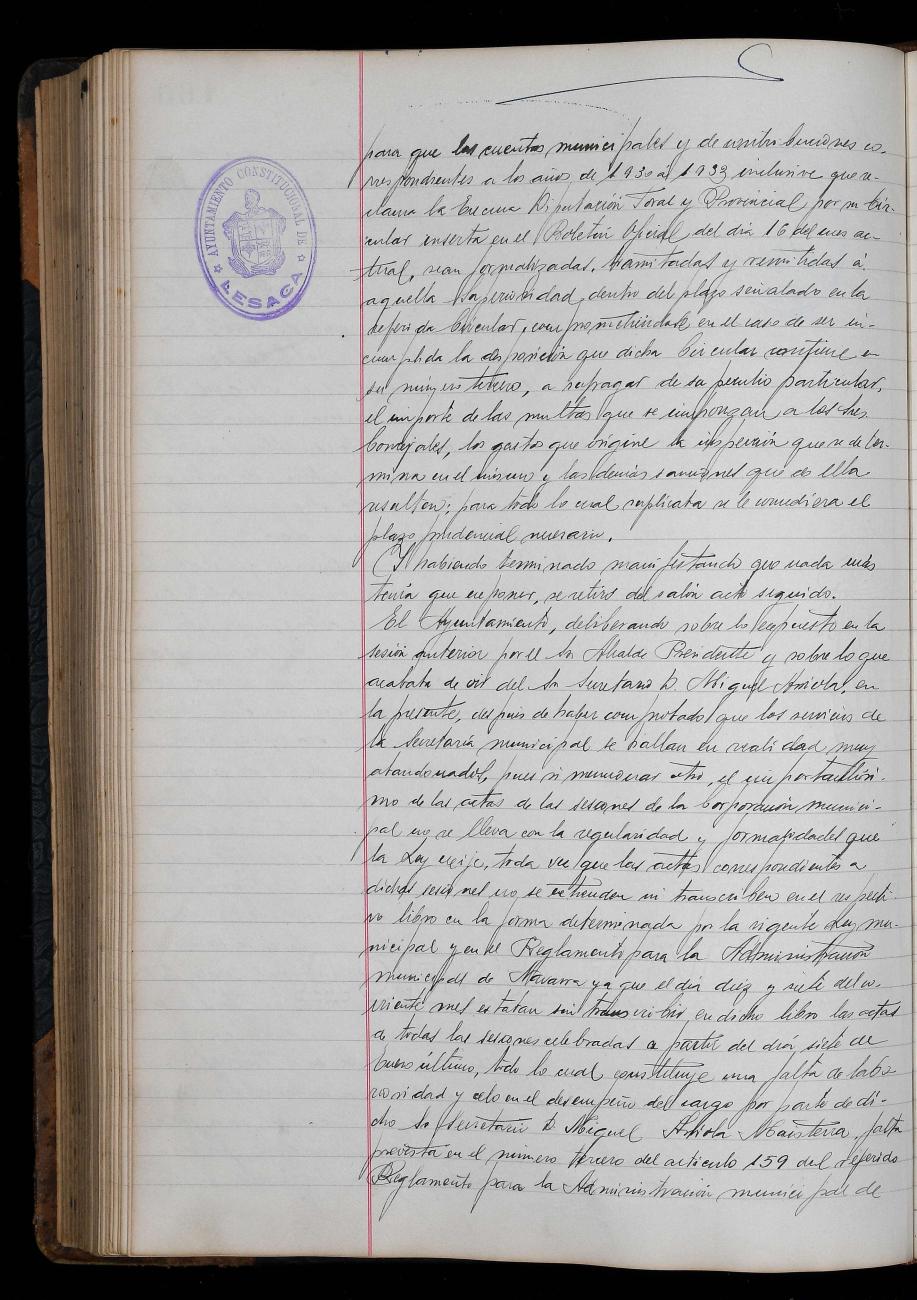 AYUNTAMIENTO CONSTITUCIONAL DE
LESACA
para que las cuentas municipales y de contribuciones co-
rrespondientes a los años de 1930 á 1933 inclusive que re-
clama la Excma Diputación Foral y Provincial por su Cir-
cular inserta en el Boletin Oficial del dia 16 del mes ac-
tual, sean formalizadas, tramitadas y remitidas á
aquella superioridad, dentro del plazo señalado en la
referida Circular, comprometiendose en el caso de ser in-
cumplida la disposición que dicha Circular contiene en
su número tercero, a sufragar de su peculio particular,
el importe de las multas que se impongan a los tres
Concejales, los gastos que origine la inspección que se deter-
mina en el mismo y las demás sanciones que de ella
resulten; para todo lo cual suplicaba se le concediera el
plazo prudencial necesario.
Y habiendo terminado manifestando que nada más
tenía que exponer, se retiró del salón acto seguido.
El Ayuntamiento, deliberando sobre lo expuesto en la
sesión anterior por el Sr Alcalde Presidente y sobre lo que
acababa de oir del Sr Secretario D. Miguel Arriola, en
la presente, después de haber comprobado que los servicios de
la Secretaría municipal se hallan en realidad muy
abandonados, pues si mencionar otro, el importantísi-
mo de las actas de las sesiones de la Corporación munici-
pal no se lleva con la regularidad y formalidades que
la Ley exije, toda vez que las actas correspondientes a
dichas sesiones no se extienden ni transcriben en el respecti-
vo libro en la forma determinada por la vigente Ley mu-
nicipal y en el Reglamento para la Administracion
municipal de Navarra ya que el dia diez y siete del co-
rriente mes estaban sin transcribir, en dicho libro las actas
de todas las sesiones celebradas a partir del dia siete de
Enero último, todo lo cual constituye una falta de labo-
riosidad y celo en el desempeño del cargo por parte de di-
cho Sr Secretario D. Miguel Arriola Maisterra, falta
prevista en el numero tercero del articulo 159 del referido
Reglamento para la Administración municipal de